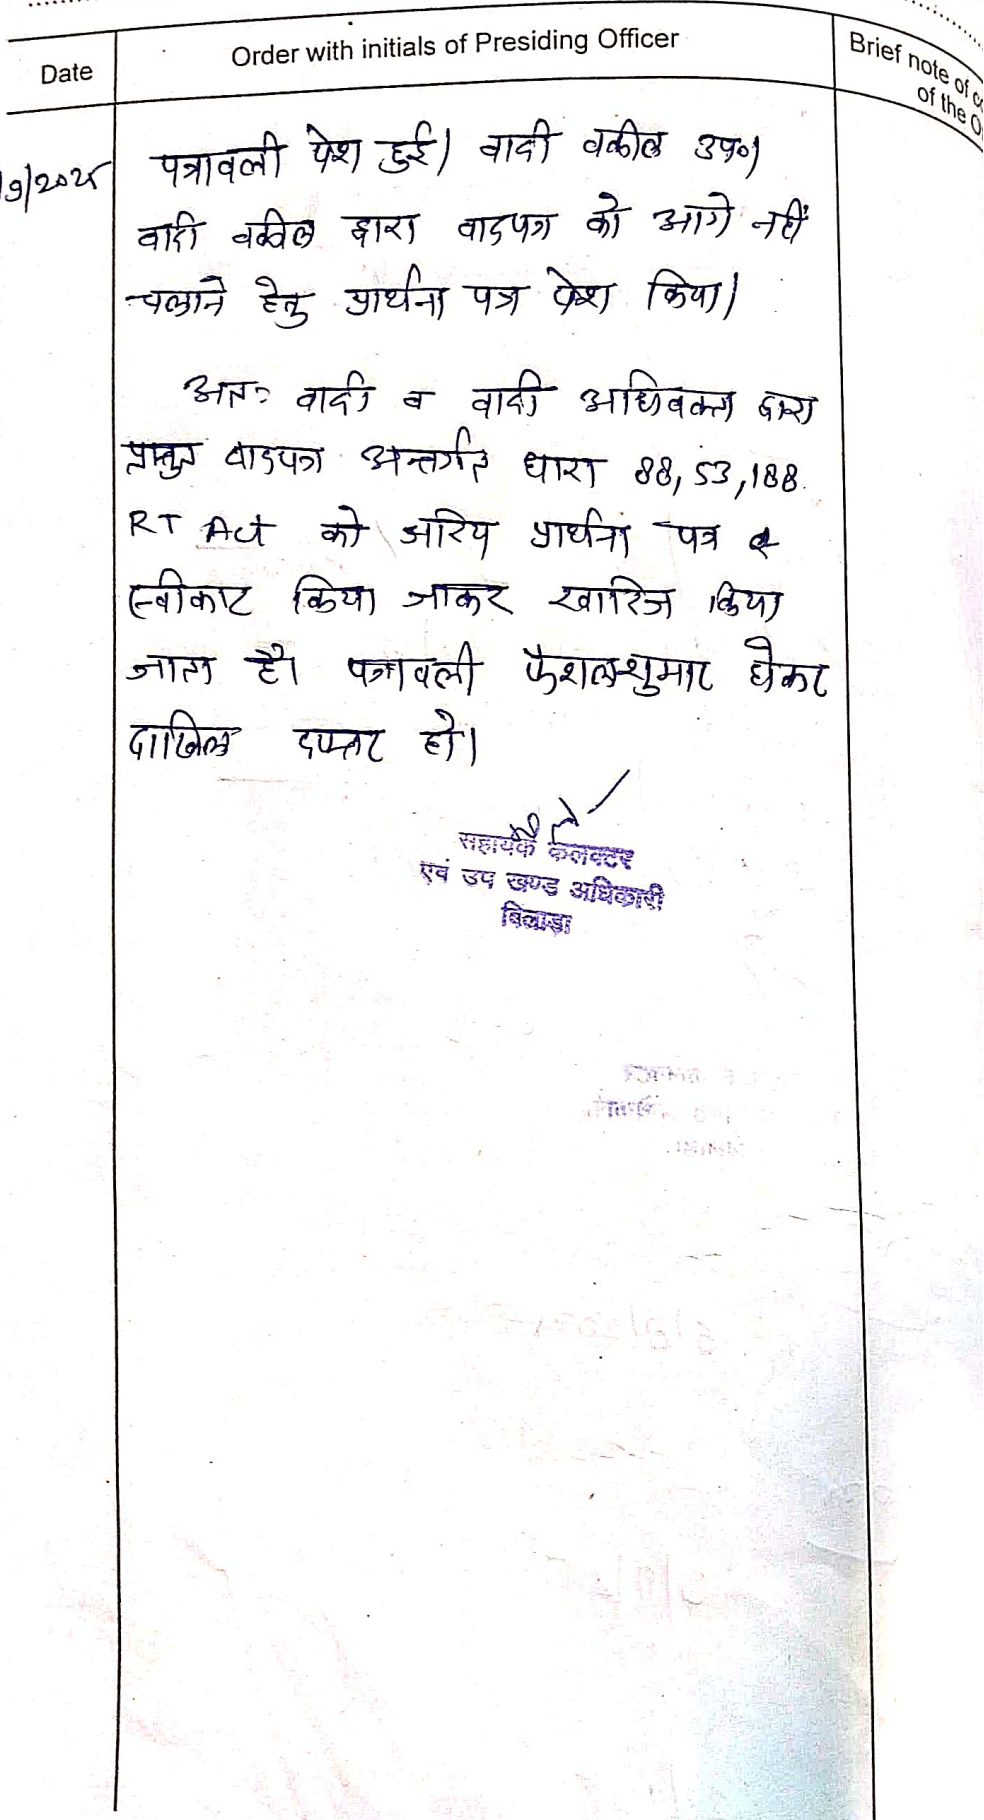 Date
Order with initials of Presiding Officer
Brief note of
of the
9/2025
पत्रावली पेश हुई। वादी वकील उप०।
वादी वकील द्वारा वादपत्र को आगे नहीं
चलाने हेतु प्रार्थना पत्र पेश किया।
अतः वादी व वादी अधिवक्ता द्वारा
प्रस्तुत वादपत्र अन्तर्गत धारा 88, 53, 188
RT Act को जरिये प्रार्थना पत्र
स्वीकार किया जाकर खारिज किया
जाता है। पत्रावली फैशलशुमार होकर
दाखिल दफ्तर हो।
सहायक कलक्टर
एवं उप खण्ड अधिकारी
बिलाड़ा